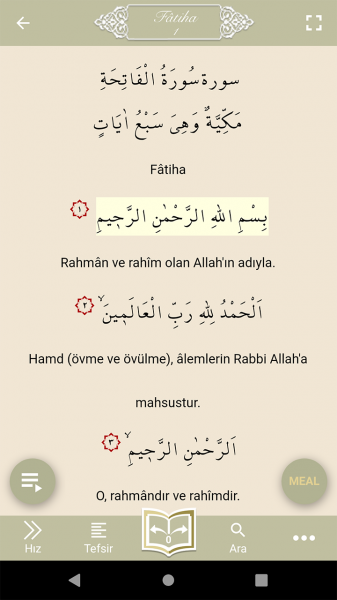 Fâtiha
1
سورة سُورَةُ الْفَاتِحَةِ
مَكِّيَّةٌ وَهِىَ سَبْعُ اٰيَاتٍ
Fâtiha
بِسْمِ اللهِ الرَّحْمٰنِ الرَّح۪يمِ ١
Rahmân ve rahîm olan Allah'ın adıyla.
اَلْحَمْدُ لِلهِ رَبِّ الْعَالَم۪ينَۙ ٢
Hamd (övme ve övülme), âlemlerin Rabbi Allah'a
mahsustur.
اَلرَّحْمٰنِ الرَّح۪يمِۙ ٣
MEAL
O, rahmândır ve rahîmdir.
0
Hız
Tefsir
Ara